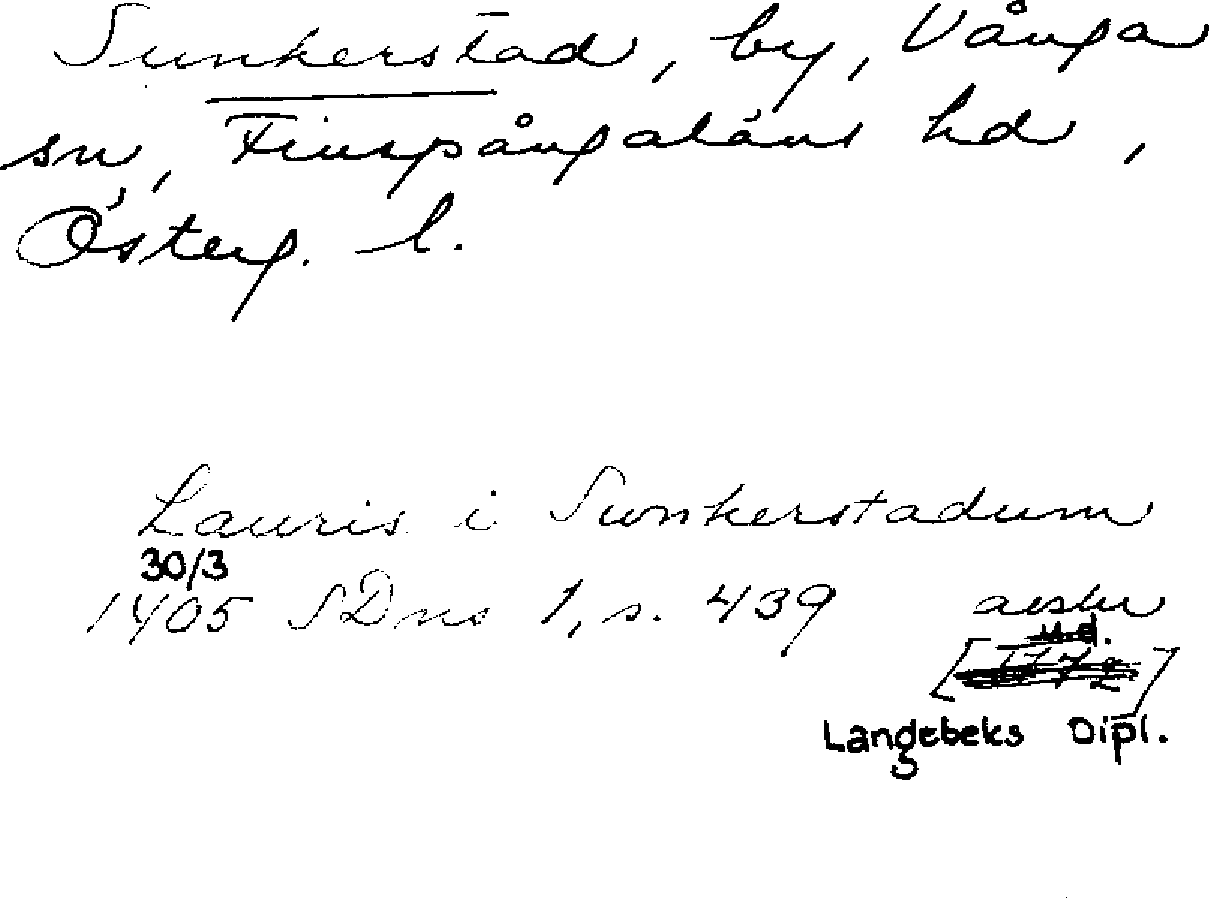 Sunkerstad, by, Vånga
sn, Finspångaläns hd,
Österg. l.
Lauris i Swnkerstadum
30/3
1405 SDns 1, s. 439
avskr
u.d.
[1772]
Langebeks Dipl.